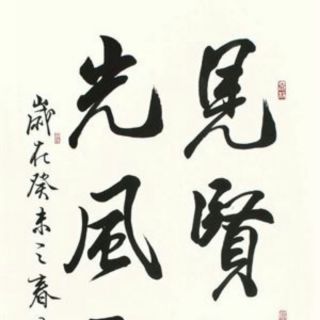 見賢
先風
歲在癸未之春